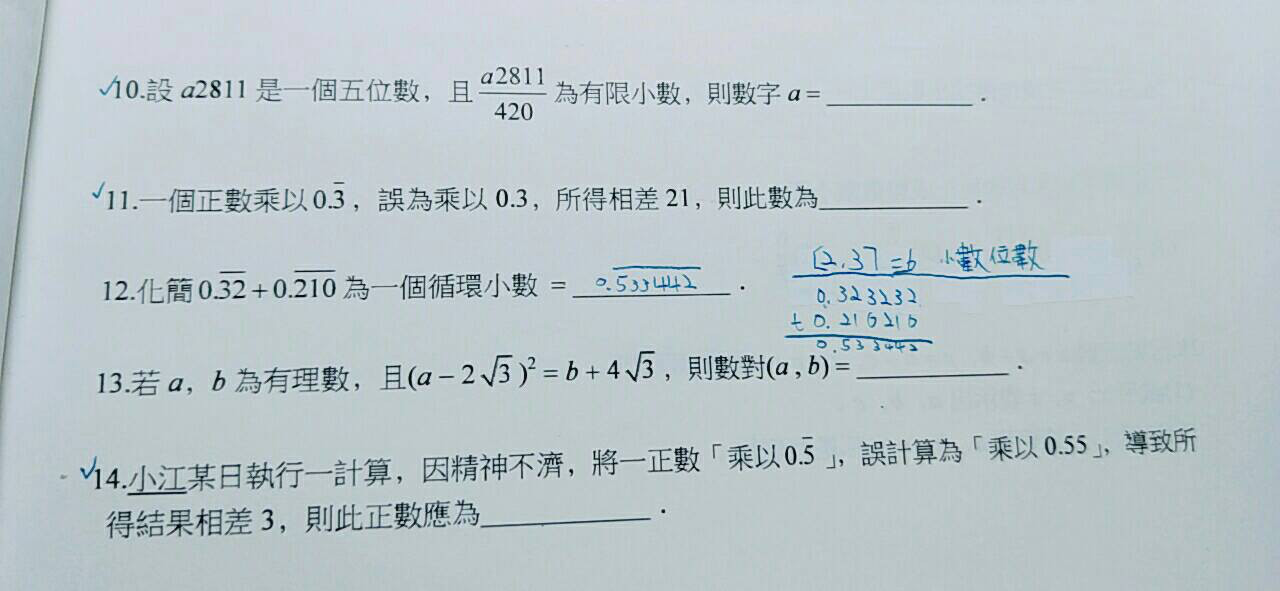 ✓10.設 a2811 是一個五位數，且 a2811/420 為有限小數，則數字 a = ________ .
✓11.一個正數乘以 0.3̅，誤為乘以 0.3，所得相差 21，則此數為________ .
[2.3]=6 小數位數
12.化簡 0.3̅2̅ + 0.2̅1̅0̅ 為一個循環小數 = 0.5̅3̅3̅4̅4̅2̅ .
0.323232
+ 0.210210
0.533442
13.若 a，b 為有理數，且(a − 2√3)² = b + 4√3，則數對(a , b) = ________ .
✓14.小江某日執行一計算，因精神不濟，將一正數「乘以 0.5̅」，誤計算為「乘以 0.55」，導致所
得結果相差 3，則此正數應為________ .